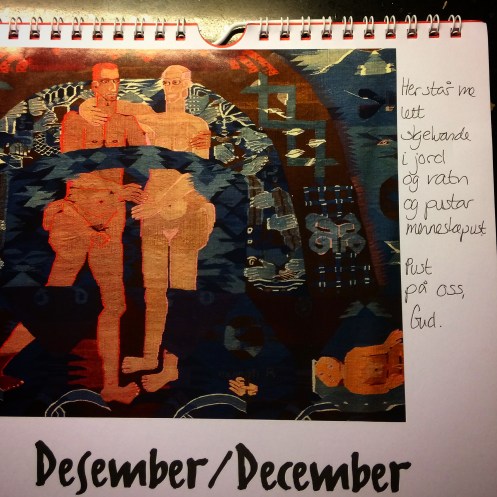 Her står me
lett
skjelvande
i jord
og vatn
og pustar
menneskepust
Pust
på oss,
Gud.
Desember/December